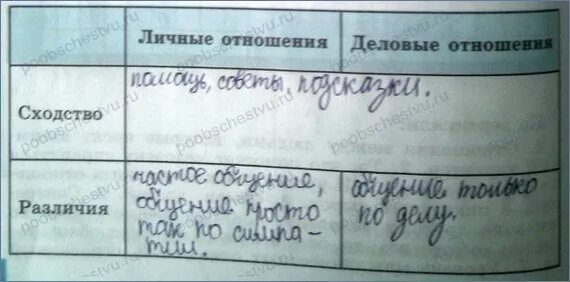 Личные отношения
Деловые отношения
Сходство
помощь, советы, подсказки.
Различия
частое общение,
общение просто
так по симпа-
тии.
общение только
по делу.
poobschestvu.ru